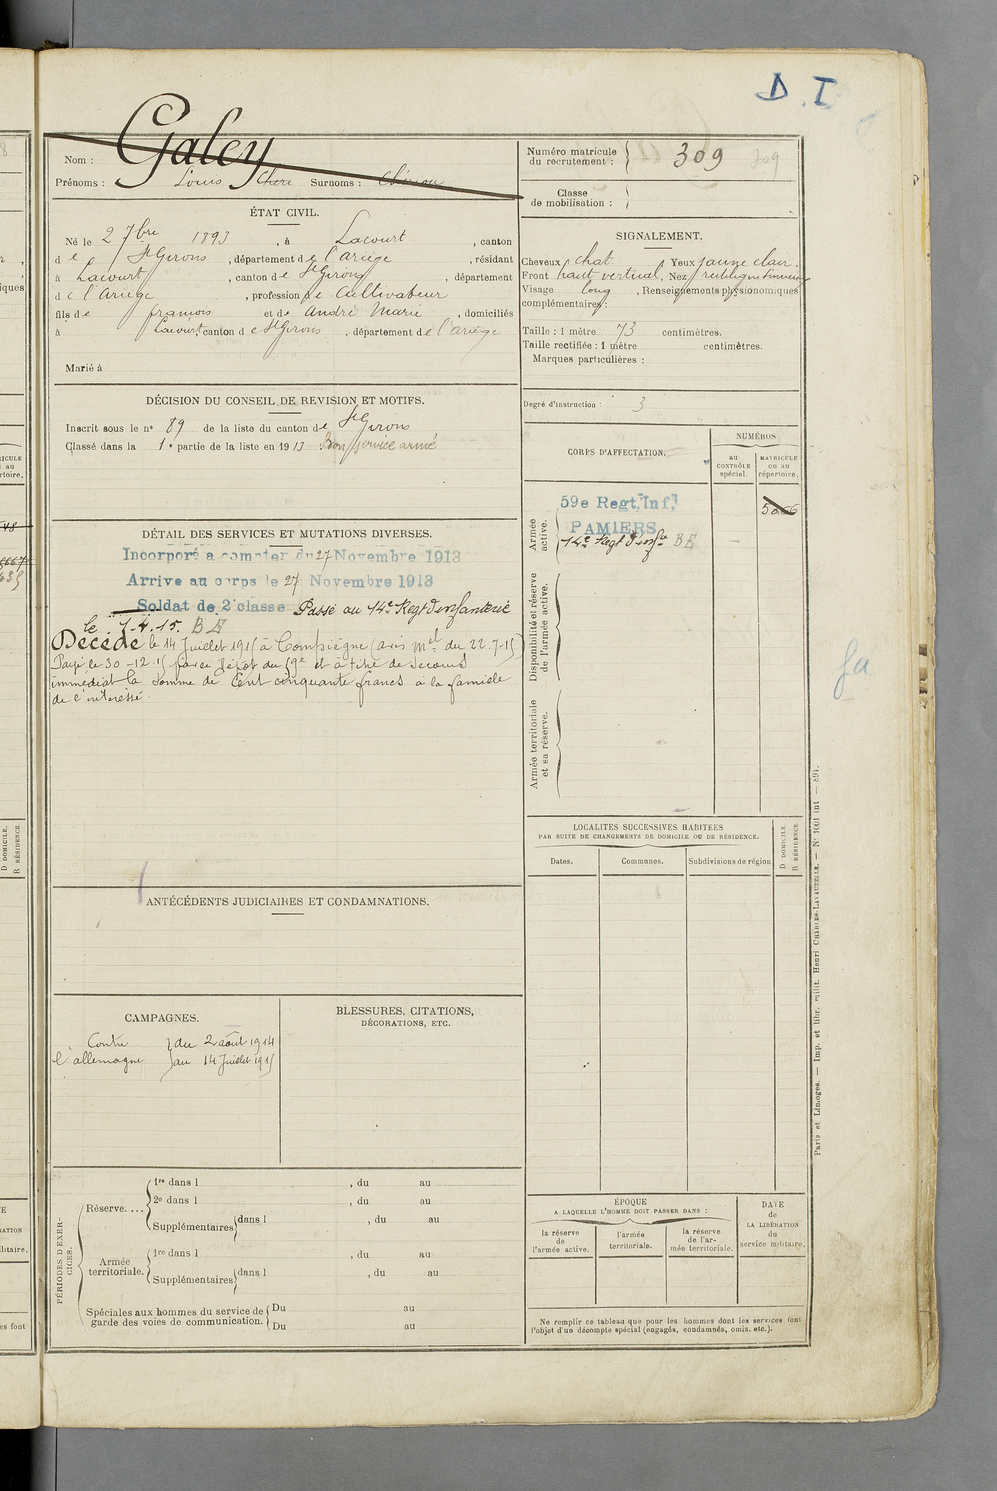 D. I
Nom : Galey
Prénoms : Louis Chéri Surnoms :
Numéro matricule du recrutement : 309
Classe de mobilisation :
ÉTAT CIVIL.
Né le 2 7bre 1893, à Lacourt, canton
de St Girons, département de l'ariège, résidant
à Lacourt, canton de St Girons, département
de l'Ariège, profession de Cultivateur
fils de françois et de André Marie, domiciliés
à Lacourt canton de St Girons, département de l'ariège
Marié à
SIGNALEMENT.
Cheveux chat. Yeux jaune clair.
Front haut vertical, Nez rectiligne
Visage long, Renseignements physionomiques
complémentaires :
Taille : 1 mètre 73 centimètres.
Taille rectifiée : 1 mètre centimètres.
Marques particulières :
Degré d'instruction : 3
DÉCISION DU CONSEIL DE REVISION ET MOTIFS.
Inscrit sous le n° 89 de la liste du canton de St Girons
Classé dans la 1e partie de la liste en 1913 Bon service armé
DÉTAIL DES SERVICES ET MUTATIONS DIVERSES.
Incorporé a compter du 27 Novembre 1913
Arrive au corps le 27 Novembre 1913
Soldat de 2e classe Passé au 14e Regt d'infanterie
le 7.4.15. BE
Décédé le 14 Juillet 1915 à Compiègne (avis Mel du 22-7-15)
Payé le 30-12-15 par le Dépôt du 59e et à titre de secours
immédiat la somme de Cent cinquante francs à la famille
de l'intéressé.
CORPS D'AFFECTATION.
NUMÉROS
au CONTRÔLE spécial.
MATRICULE ou au répertoire.
Armée active.
59e Regt. Inf.
PAMIERS
14e Regt d'infie BE
5066
Disponibilité et réserve de l'armée active.
Armée territoriale et sa réserve.
ANTÉCÉDENTS JUDICIAIRES ET CONDAMNATIONS.
LOCALITÉS SUCCESSIVES HABITÉES
PAR SUITE DE CHANGEMENTS DE DOMICILE OU DE RÉSIDENCE.
Dates.
Communes.
Subdivisions de région
D DOMICILE.
R RÉSIDENCE.
CAMPAGNES.
Contre du 2 août 1914
l'allemagne au 14 Juillet 1915
BLESSURES, CITATIONS,
DÉCORATIONS, ETC.
PÉRIODES D'EXERCICES.
Réserve....
1re dans l , du au
2e dans l , du au
Supplémentaires dans l , du au
Armée territoriale.
1re dans l , du au
Supplémentaires dans l , du au
Spéciales aux hommes du service de garde des voies de communication.
Du au
Du au
ÉPOQUE
A LAQUELLE L'HOMME DOIT PASSER DANS :
la réserve de l'armée active.
l'armée territoriale.
la réserve de l'armée territoriale.
DATE de LA LIBÉRATION du service militaire.
Ne remplir ce tableau que pour les hommes dont les services font
l'objet d'un décompte spécial (engagés, condamnés, omis, etc.).
Paris et Limoges. — Imp. et libr. milit. Henri CHARLES-LAVAUZELLE. — N° 1001 int — 891.